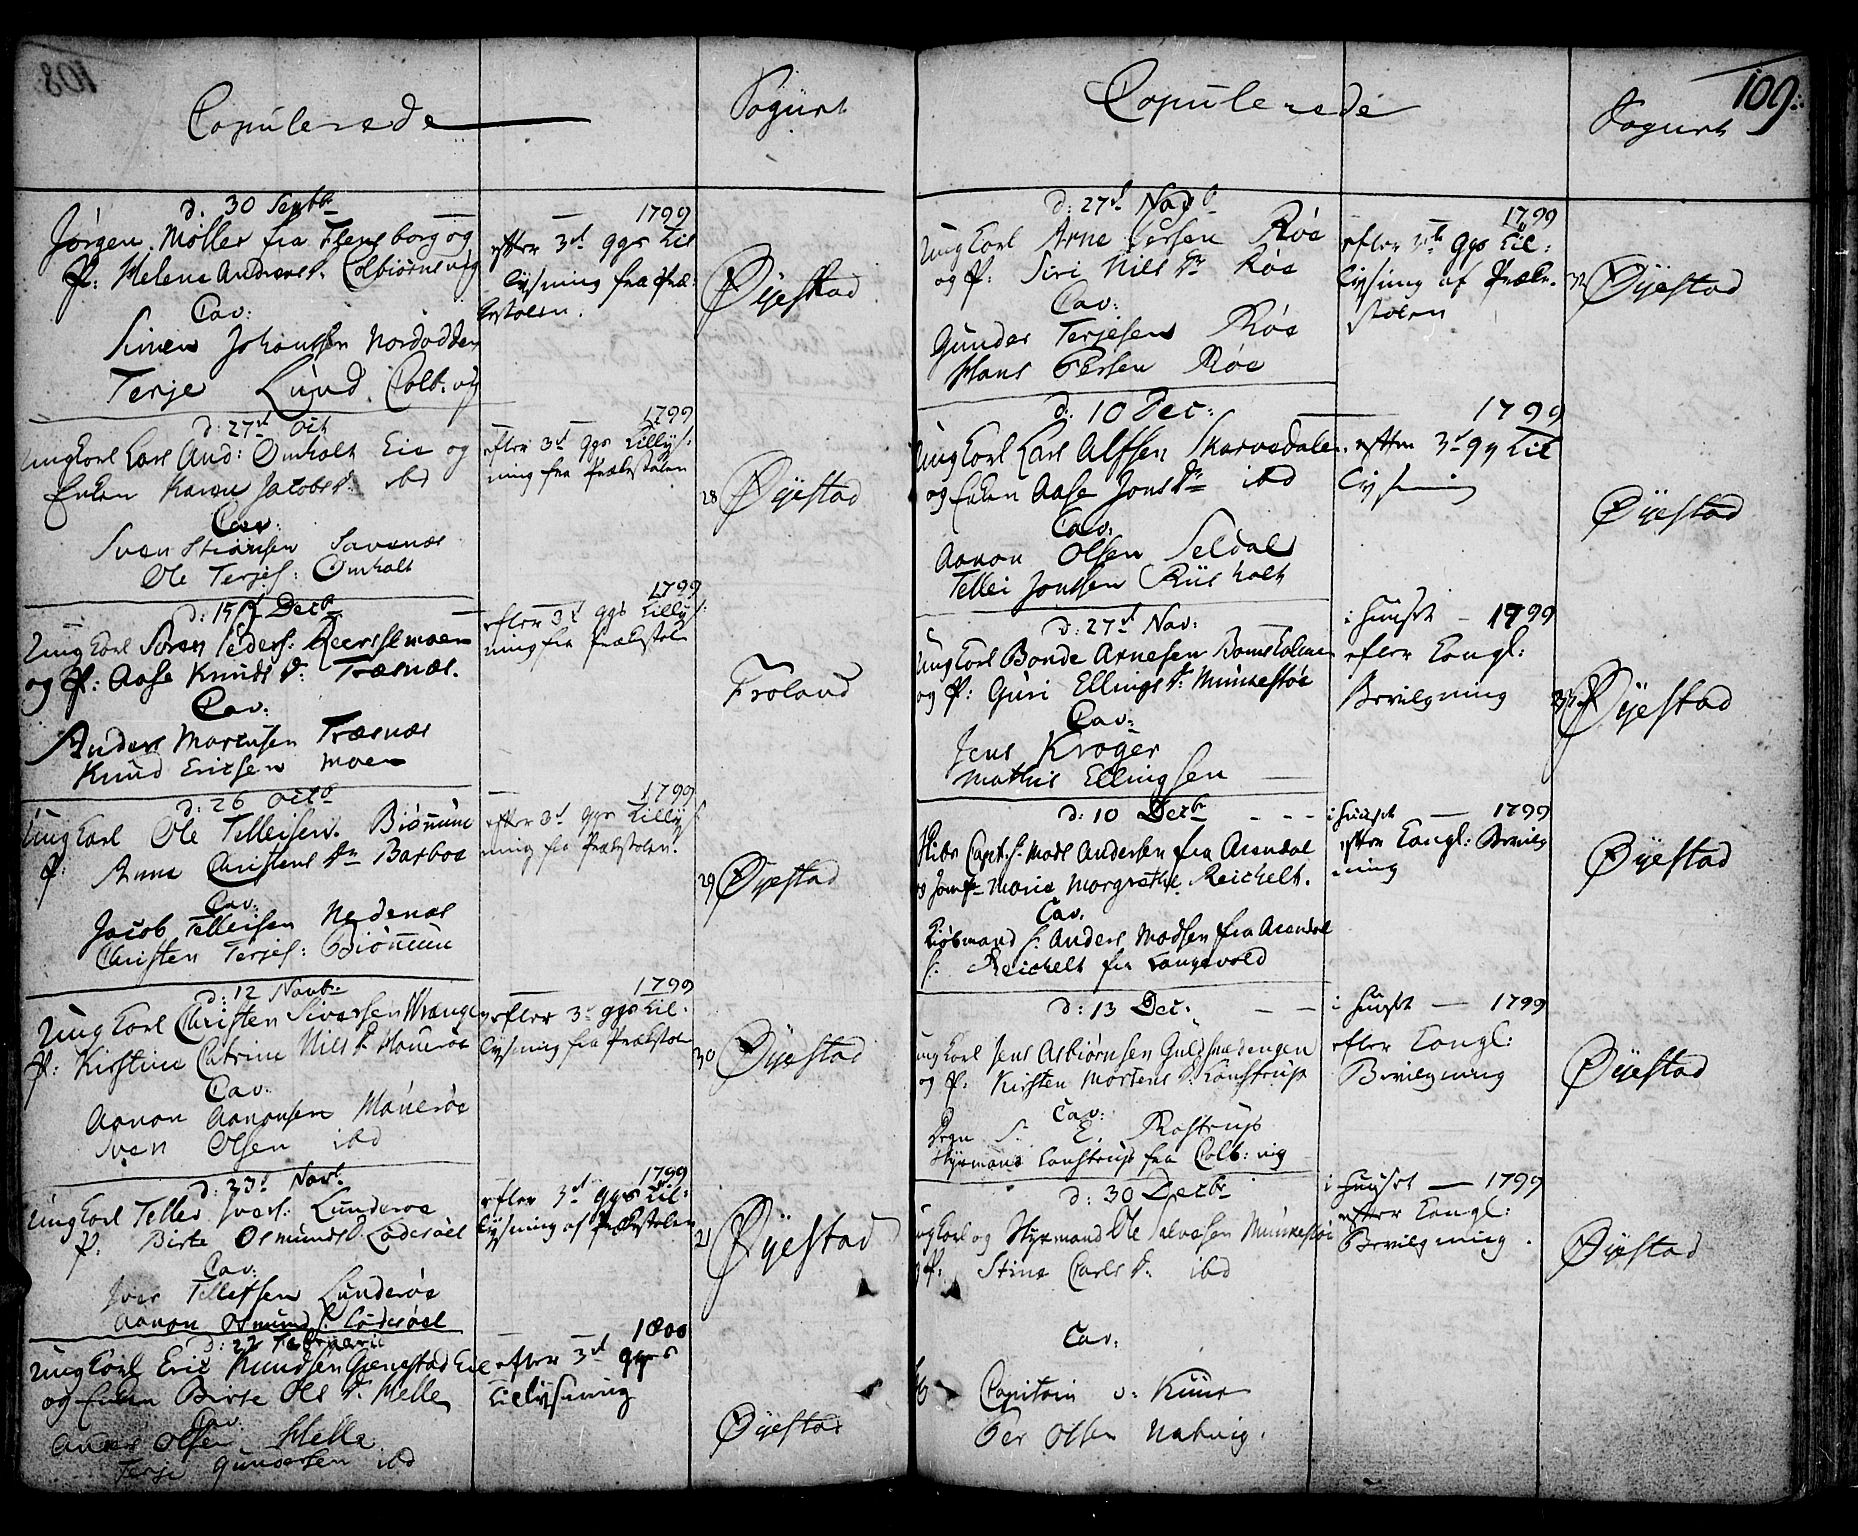 108
Copulerede
Sognet
d: 30 Septbr
Jørgen Møller fra Flensborg og
P: Helene Anders D. Colbiørnsvig
Cav:
Simen Johansen Nordodden
Terje Lund Colb: vig
1799
efter 3de ggs Til
lysning fra Præ:
kestolen.
Øyestad
d: 27d Oct
Ungkarl Carl And: Omholt Eie og
Enken Karen Jacobs D. ibd
Cav:
Sven Stiansen Savenæs
Ole Terjes: Omholt
1799
efter 3d ggs Tillys:
ning fra Prækestolen
28 Øyestad
d: 15 Decb
Ungkarl Søren Peders:
og P: Aase Knuds D: Træsnæs.
Cav:
Anders Mortensen Træsnæs
Knud Ericsen Moen
1799
efter 3d ggs Tillys:
ning fra Prækestolen
Froland
d: 26 Octb
Ungkarl Ole Tellefsen Biønnum
P: Anne Christens Dr Barboe
Cav:
Jacob Tellefsen Nedenæs
Christen Terjes: Biønnum
1799
efter 3d ggs Tillys:
ning fra Prækestolen.
29 Øyestad
d: 12 Novb:
Ungkarl Christen Siversen
P: Kirstine Catrine Niels D.
Cav:
Aanon Aanonsen
Sven Olsen ibd
1799
efter 3d ggs Til:
lysning fra Prækestolen
30 Øyestad
d: 23d Novb.
Ungkarl Tellef Ivers: Lunderøe
P: Birte Osmunds D.
Cav:
Iver Tellefsen Lunderøe
Aanon Osmunds:
1799
efter 3d ggs Til:
lysning af Prækestolen
21 Øyestad
d: 22 Februarii
Ungkarl Eric Knudsen Gienestad Eie
og Enken Birte Ols D. Helle
Cav
Anders Olsen Helle
Terje Gundersen ibd
1800
efter 3d ggs
Tillysning
Øyestad
109
Copulerede
Sognet
d: 27d Novb
Ungkarl Arne Persen Røe
og P: Siri Nils Dr Røe
Cav:
Gunder Terjesen Røe
Hans Persen Røe
1799
efter 3de Ggs Til:
lysning af Præke-
stolen
32 Øyestad
d: 10 Dec:
Ungkarl Carl Alfsen Skarvedalen
og Enken Aase Jons Dr ibd
Cav:
Aanon Olsen Seldal
Tellef Jonsen Riisholt
1799
efter 3d gg Til
lysning
Øyestad
d: 27d Nov:
Ungkarl Bonde Arnesen
og P: Guri Ellings D: Munkestøe
Cav:
Jens Krøger
Mathis Ellingsen
i Huuset — 1799
efter Kongl:
Bevilgning
33 Øyestad
d: 10 Decbr
Skibs Capt: S. Mads Andersen fra Arendal
og Jomfr Marie Margrethe Reichelt.
Cav.
Kiøbmand S. Anders Madsen fra Arendal
S. Reichelt fra Langevold
i Huuset — 1799
efter Kongl: Bevilg
ning
Øyestad
d: 13 Dec:
Ungkarl Jens Asbiørnsen Guldsmedengen
og P: Kirsten Mortens D. Lonstrup
Cav:
Degn S. E. Rostrup
Styrmand Lonstrup fra Colb: vig
i Huuset — 1799
efter Kongl:
Bevilgning
Øyestad
d: 30 Decbr
Ungkarl og Styrmand Ole Salvesen Munkestøe
og P: Stine Carls D. ibd
Cav:
Capitain v: Kuur
Per Olsen Natvig.
i Huuset — 1799
efter Kongl:
Bevilgning.
Øyestad